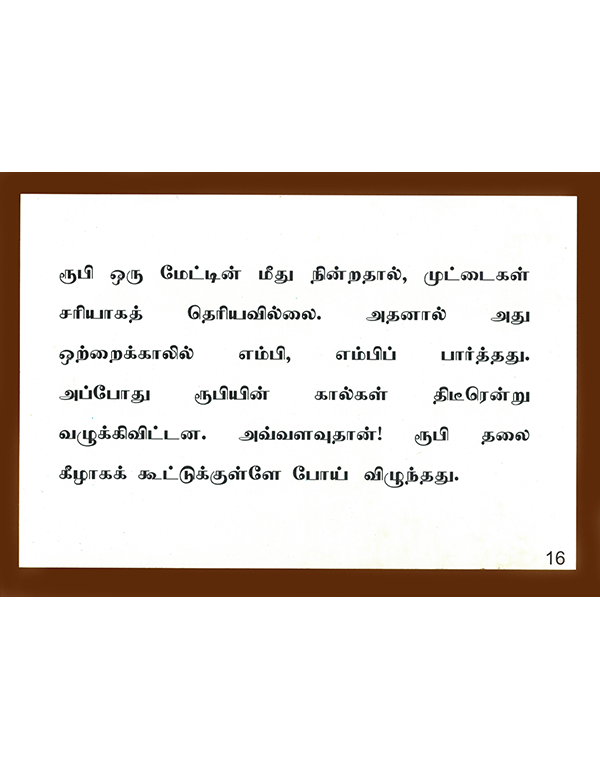 ரூபி ஒரு மேட்டின் மீது நின்றதால், முட்டைகள்
சரியாகத் தெரியவில்லை. அதனால் அது
ஒற்றைக்காலில் எம்பி, எம்பிப் பார்த்தது.
அப்போது ரூபியின் கால்கள் திடீரென்று
வழுக்கிவிட்டன. அவ்வளவுதான்! ரூபி தலை
கீழாகக் கூட்டுக்குள்ளே போய் விழுந்தது.
16